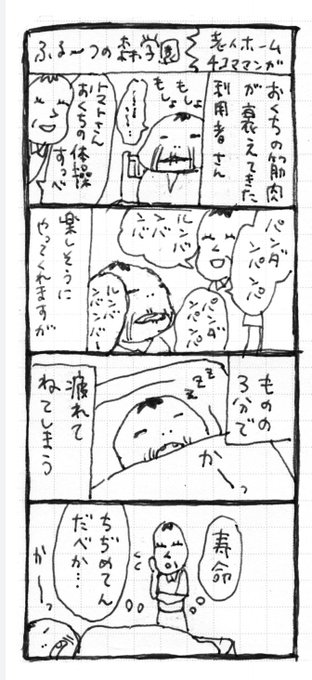 ふる〜つの森学園
老人ホーム
4コママンガ
おくちの筋肉
が衰えてきた
利用者さん
もしょ
もしょ
……
トマトさん
おくちの体操
すっぺ
パンダ
ンパンパ
ルンバ
ンバ
ンバ
パンダ
ンパ
ンパ
ルンバ
ンバ
ンバー
楽しそうに
やってくれますが
ものの
3分で
zzzz
かーっ
疲れて
ねてしまう
寿命
ちぢめてん
だべか…
かーっ